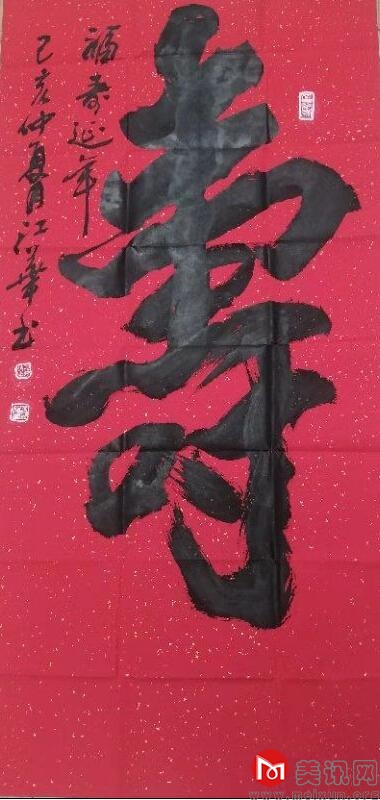 壽
福壽延年
己亥仲夏月江華书
美讯网
www.meixun.org